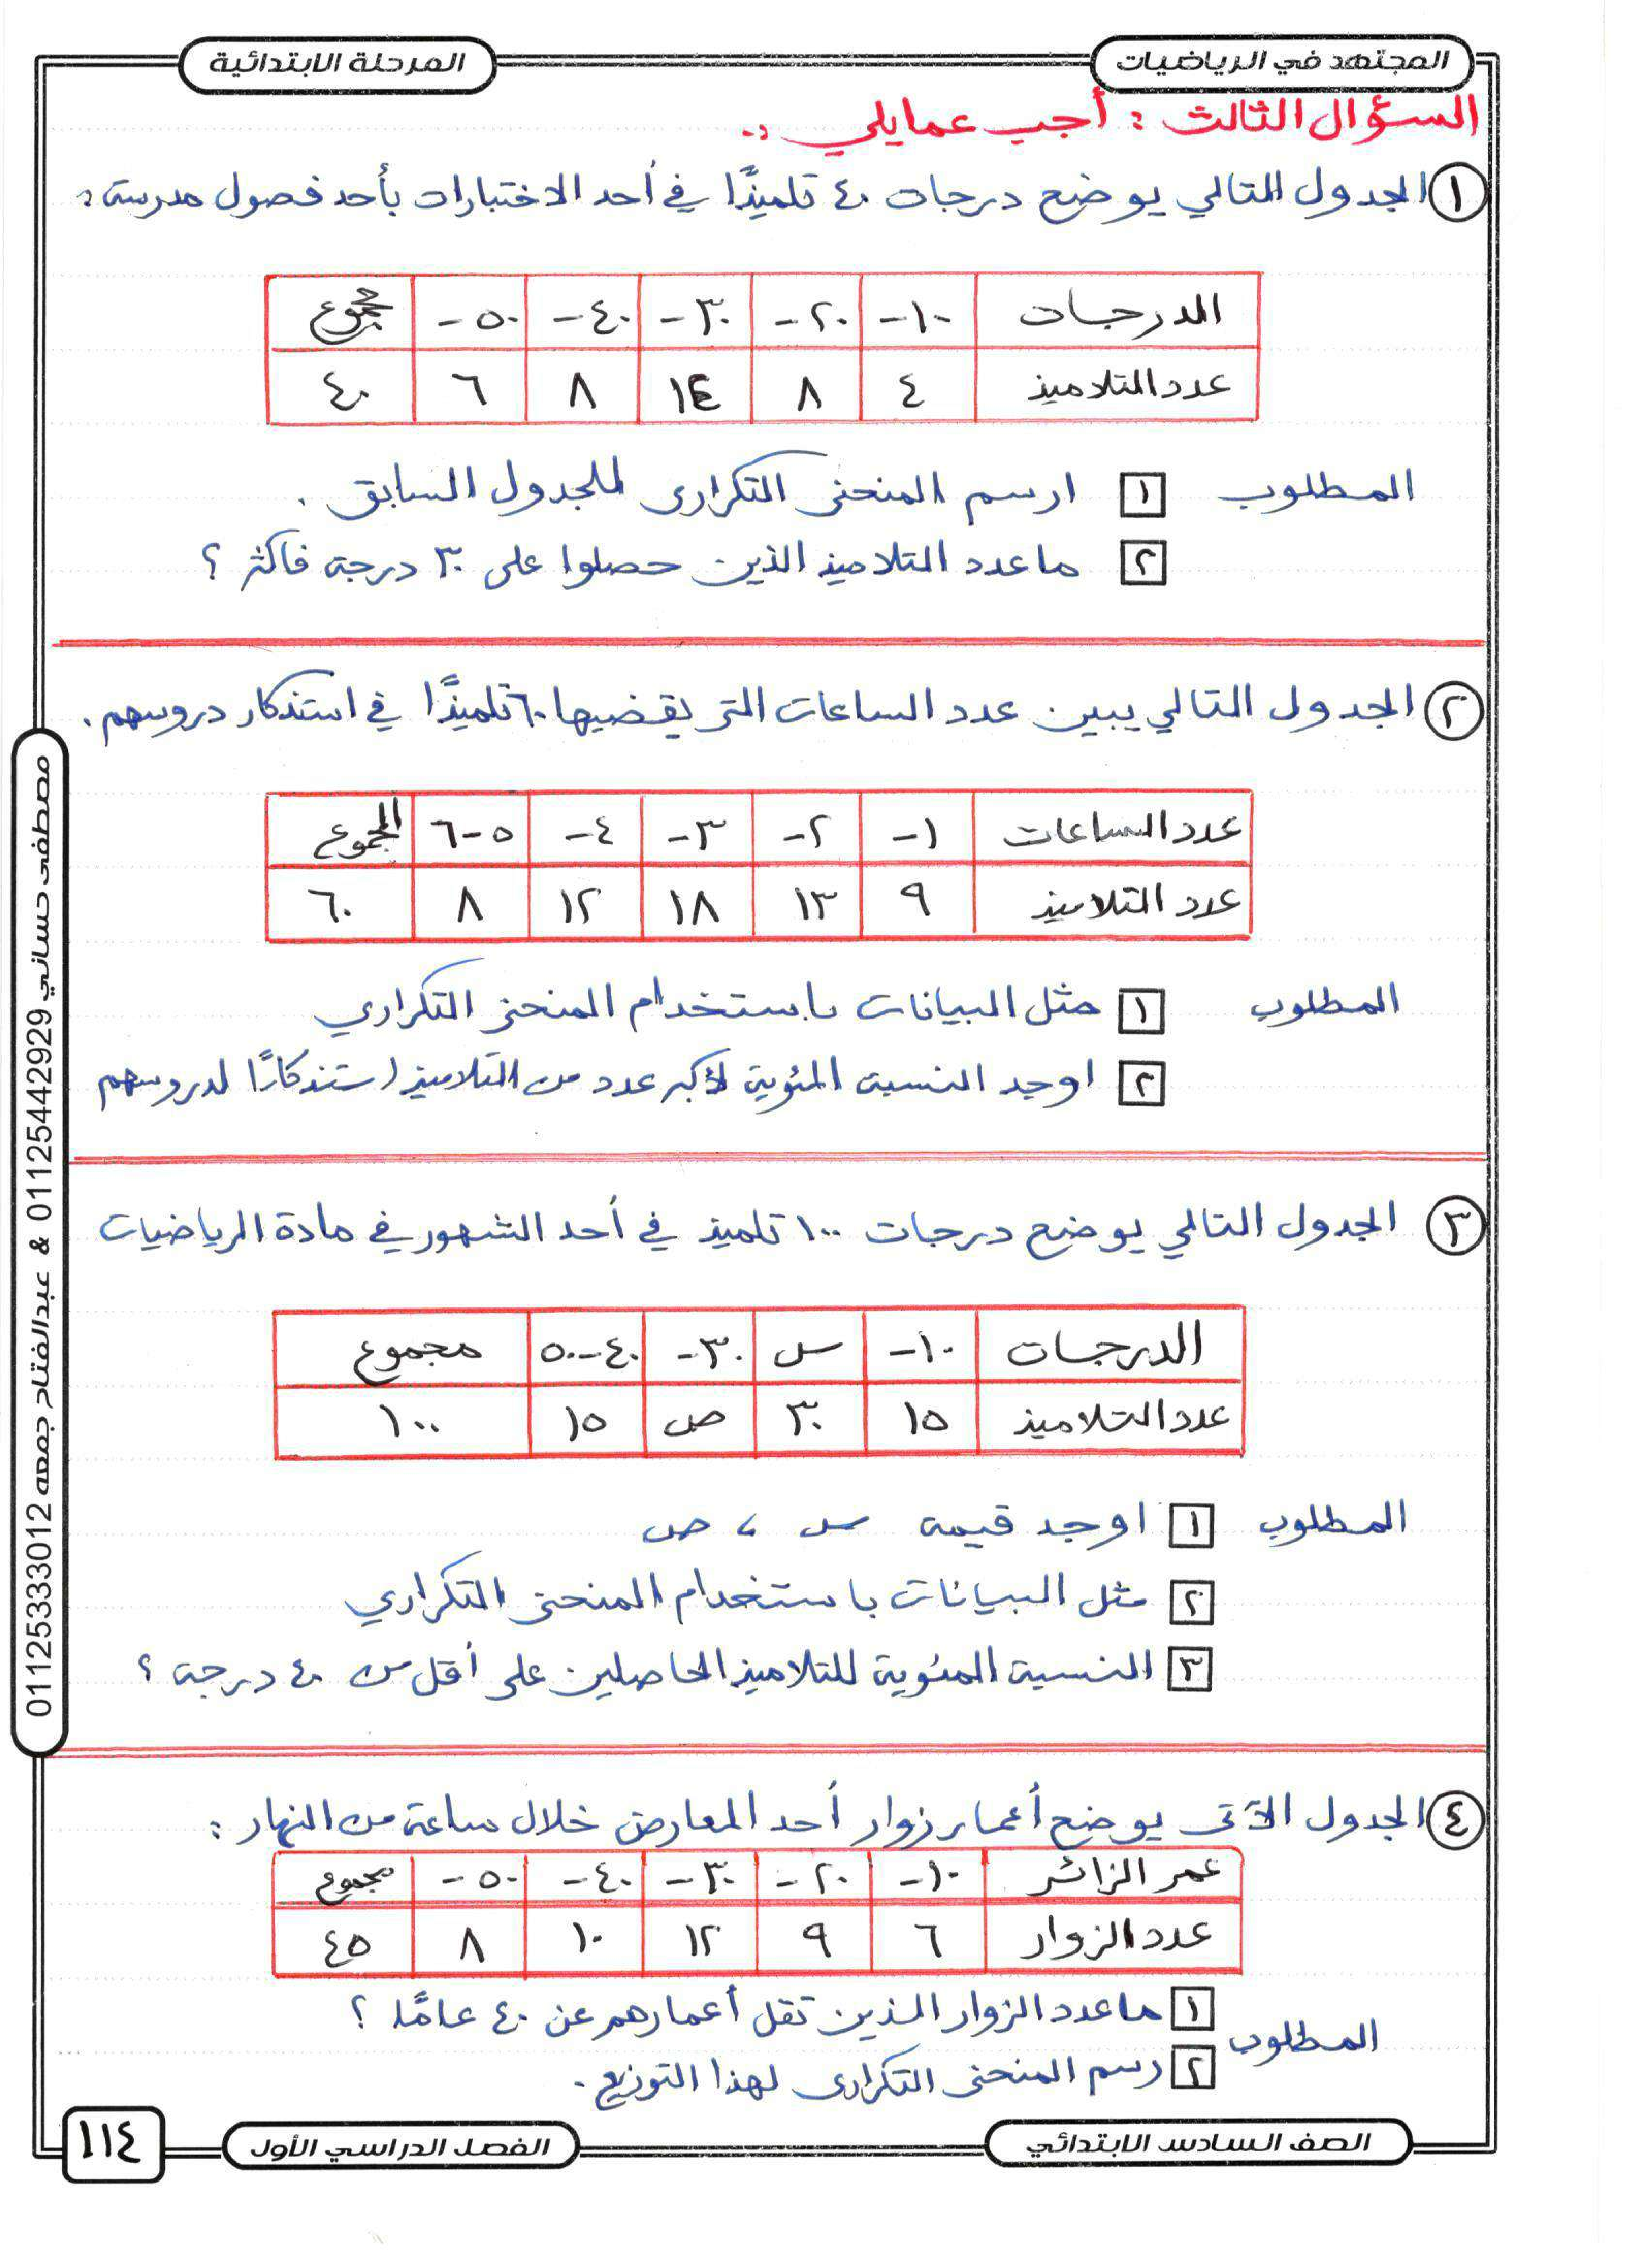 المجتهد في الرياضيات
المرحلة الابتدائية
السؤال الثالث : أجب عمايلي :-
١ الجدول التالي يوضح درجات ٤٠ تلميذًا في أحد الاختبارات بأحد فصول مدرسة :
الدرجات ١٠- ٢٠- ٣٠- ٤٠- ٥٠- مجموع
عدد التلاميذ ٤ ٨ ١٤ ٨ ٦ ٤٠
المطلوب ١ ارسم المنحنى التكرارى للجدول السابق .
٢ ما عدد التلاميذ الذين حصلوا على ٣٠ درجة فاكثر ؟
٢ الجدول التالي يبين عدد الساعات التى يقضيها ٦٠ تلميذًا في استذكار دروسهم .
عدد الساعات ١- ٢- ٣- ٤- ٥-٦ المجموع
عدد التلاميذ ٩ ١٣ ١٨ ١٢ ٨ ٦٠
المطلوب ١ مثل البيانات باستخدام المنحنى التكراري
٢ اوجد النسبة المئوية لأكبر عدد من التلاميذ استذكارًا لدروسهم
٣ الجدول التالي يوضح درجات ١٠٠ تلميذ في أحد الشهور في مادة الرياضيات
الدرجات ١٠- س ٣٠- ٤٠-٥٠ مجموع
عدد التلاميذ ١٥ ٣٠ ص ١٥ ١٠٠
المطلوب ١ اوجد قيمة س ، ص
٢ مثل البيانات باستخدام المنحنى التكراري
٣ النسبة المئوية للتلاميذ الحاصلين على أقل من ٤٠ درجة ؟
٤ الجدول الآتى يوضح أعمار زوار أحد المعارض خلال ساعة من النهار :
عمر الزائر ١٠- ٢٠- ٣٠- ٤٠- ٥٠- مجموع
عدد الزوار ٦ ٩ ١٢ ١٠ ٨ ٤٥
المطلوب ١ ما عدد الزوار الذين تقل أعمارهم عن ٤٠ عامًا ؟
٢ رسم المنحنى التكرارى لهذا التوزيع .
مصطفى حساني 01125442929 & عبدالفتاح جمعه 01125333012
الصف السادس الابتدائي
الفصل الدراسي الأول
١١٤